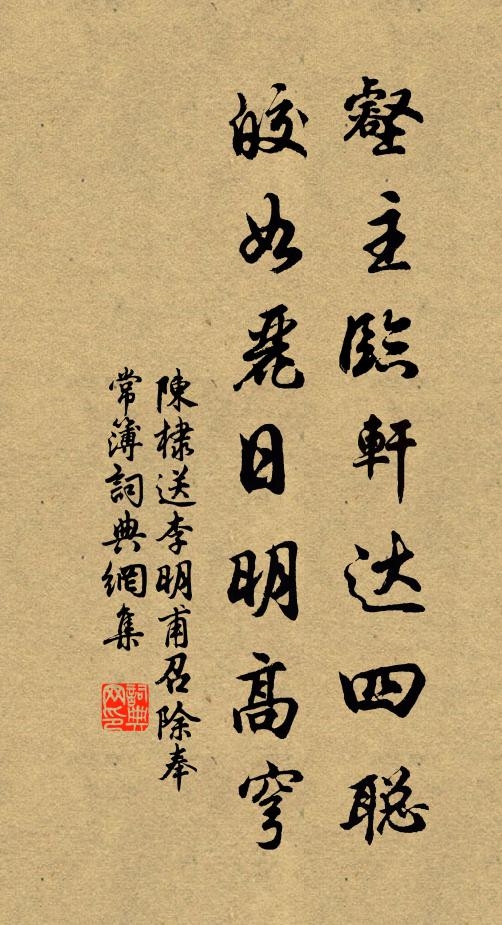 睿主臨軒达四聪
皎如麗日明高穹
陳棣送李明甫召除奉
常簿詞典網集
詞典
网印